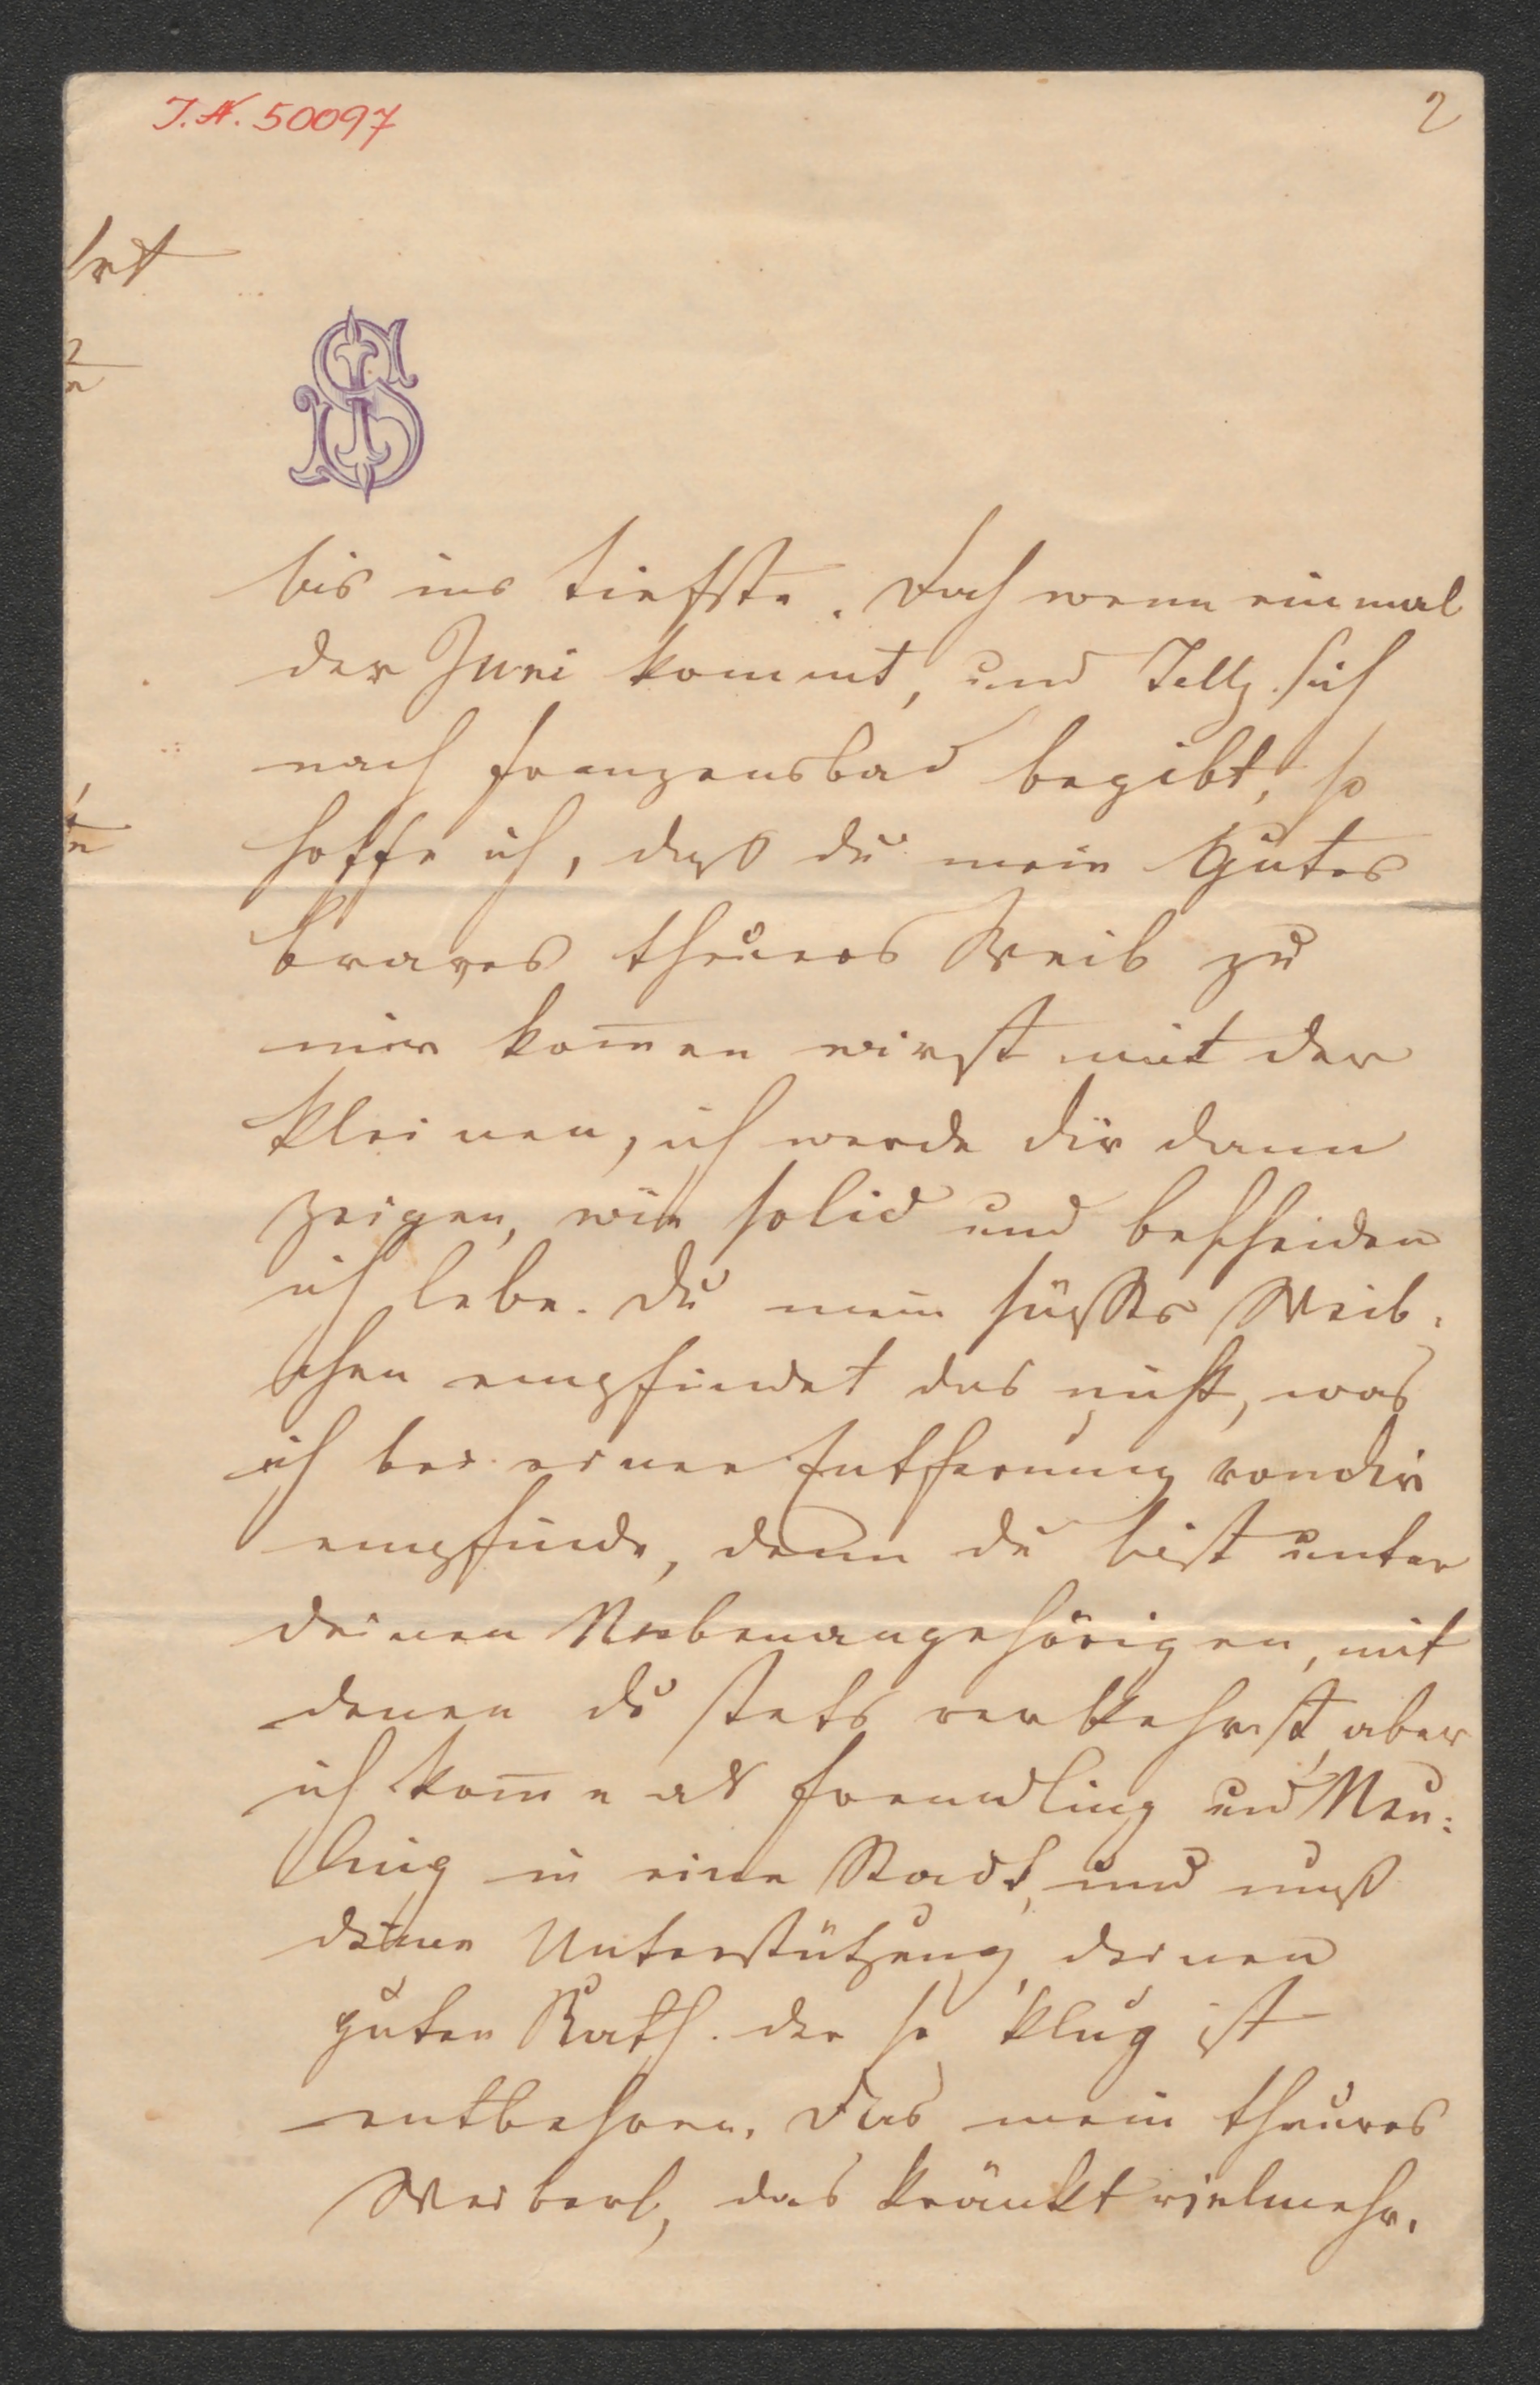 J.N. 50097
2
bis ins tiefste. Doch wenn einmal
der Juni kommt, und Jelly sich
nach Franzensbad begibt, so
hoffe ich, daß du mein gutes
braves theueres Weib zu
mir kom̅en wirst mit der
Kleinen, ich werde dir dann
zeigen, wie solid und bescheiden
ich lebe. Du mein süsses Weib-
chen empfindet das nicht, was
ich bei einer Entfernung von dir
empfinde, denn du bist unter
deinen Nebenangehörigen, mit
denen du stets verkehrst, aber
ich kom̅e als Fremdling und Neu-
ling in eine Stadt, und muß
deine Unterstützung, deinen
guten Rath. der so klug ist
entbehren. Das mein theures
Weiberl, das kränkt vielmehr.